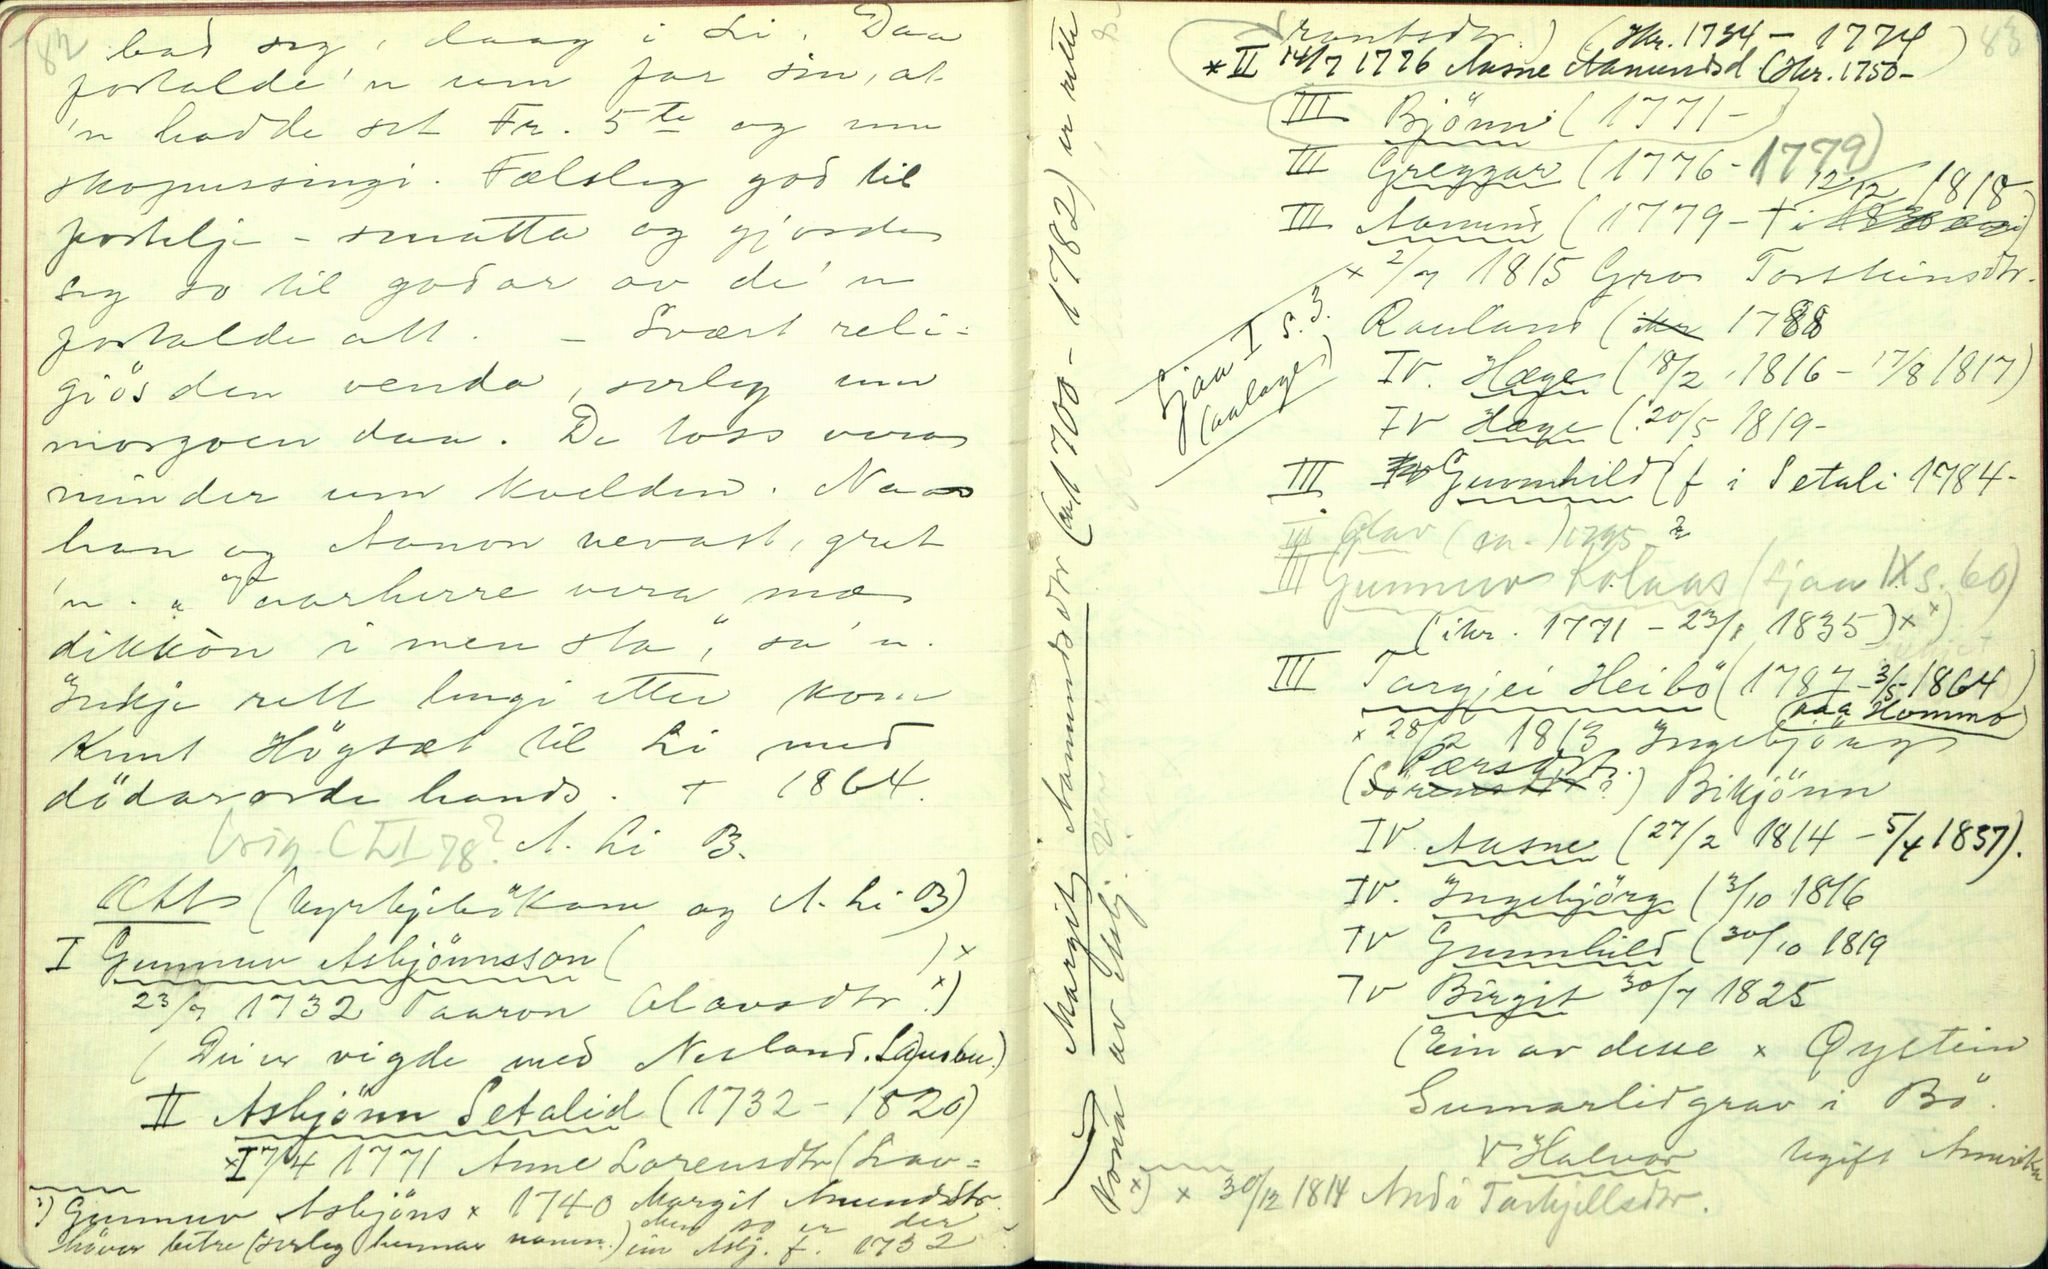 82
bad seg, daag i Li. Daa
fortalde'n um far sin, at
'n hadde set Fr. 5te og um
skopussingi. Fælsleg god til
fortelje - smatta og gjorde
seg so til godar av de'n
fortalde att. - Svært reli-
giös den venda, serleg um
morgoen daa. De toss vera
minder um kvelden. Naar
han og Aanon nevast, gret
'n. "og vaarherre vera mæ
dikkòn i men sta", sa'n.
Inkje rett lengi etter kom
Knut Högsæt til Li med
dödarorde hands. + 1864.
A. Li B.
Ætt (kyrkjebökane og A. Li B)
I Gunnuv Asbjönnsson ( ) x
23/7 1732 Taaron Olavsdtr x)
(Dei er vigde med Nesland. Lausbu.)
II Asbjönn Setalid (1732 - 1820)
x I 7/4 1771 Anne Lorensdtr (Lav-
x) Gunnuv Asbjöns x 1740 Margit Amundsdtr.
höver betre (serleg hennar namn.) Men so er der
ein Asbj. f. 1732
Kona av Asbj. Margit Aamundsdtr (ca 1700 - 1782) er rette
83
rantsdtr.) (ikr. 1734 - 1774)
* II 14/7 1776 Aasne Aamundsd (ikr. 1750-
III Bjönn (1771-
III Greggar (1776 - 1779)
III Aamund (1779 - + 12/12 1818
x 2/7 1815 Gro Torsteinsdtr.
Rauland (ikr 1788
Sjaa I s. 3.
IV. Hæge (18/2 1816 - 17/8 1817)
IV Hæge (20/5 1819-
III Gunnhild (f i Setali 1784-
III Olav (ca. 1795 - ?
III Gunnuv Kolaas (sjaa IX s. 60)
(ikr. 1771 - 23/1 1835) x x)
III Targjei Heibö (1787 - 3/5 1864)
paa Hommo
x 28/2 1813 Ingebjörg
Pærsdtr.
(Sörensdtr?) Bikjönn
IV. Aasne (27/2 1814 - 5/4 1837).
IV. Ingebjörg (3/10 1816
IV Gunnhild (30/10 1819
IV Birgit 30/7 1825
(Ein av desse x Øystein
Sumarlidgrav i Bö.
V Halvor ugift Amerika
x) x 30/12 1814 Andi Torkjellsdtr.